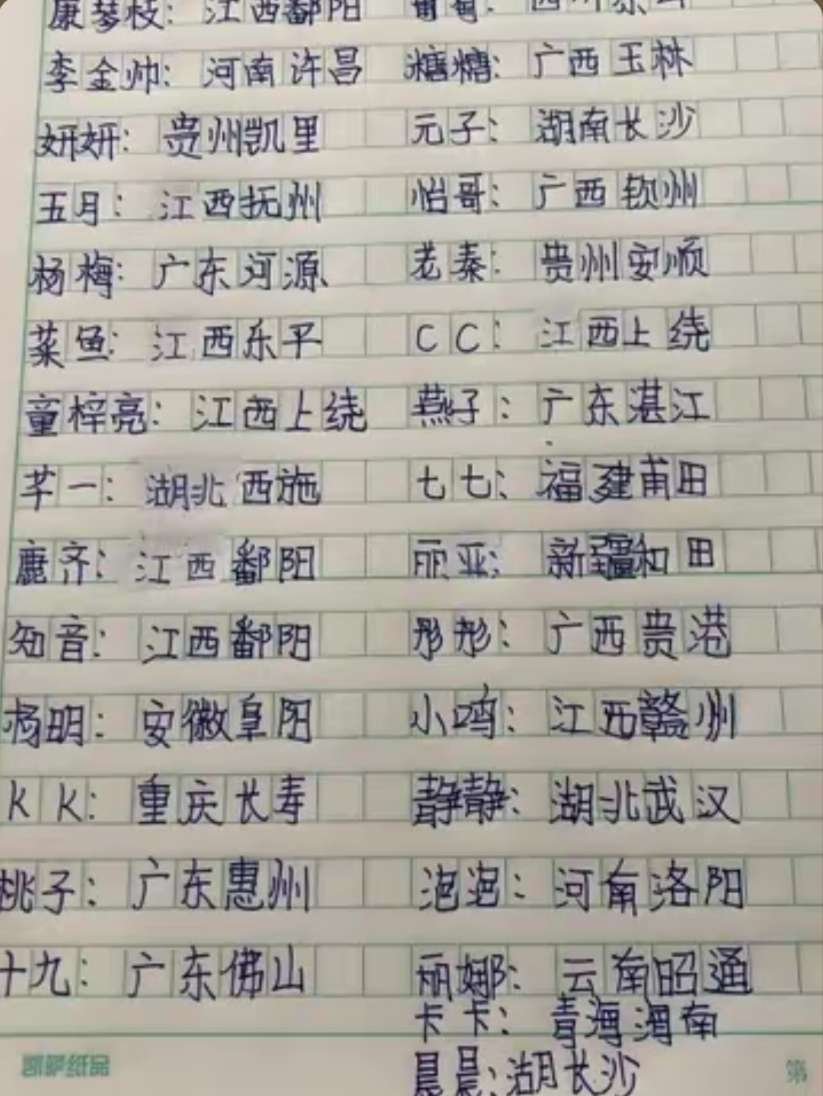 康琴枝：江西鄱阳
李金帅：河南许昌 糖糖：广西玉林
妍妍：贵州凯里 元子：湖南长沙
五月：江西抚州 怡哥：广西钦州
杨梅：广东河源 老秦：贵州安顺
菜鱼：江西乐平 CC：江西上绕
童梓亮：江西上绕 燕子：广东湛江
芊一：湖北西施 七七：福建甫田
鹿齐：江西鄱阳 丽亚：新疆和田
知音：江西鄱阳 彤彤：广西贵港
杨明：安徽阜阳 小鸣：江西赣州
KK：重庆长寿 静静：湖北武汉
桃子：广东惠州 泡泡：河南洛阳
十九：广东佛山 丽娜：云南昭通
卡卡：青海海南
晨晨：湖长沙
第